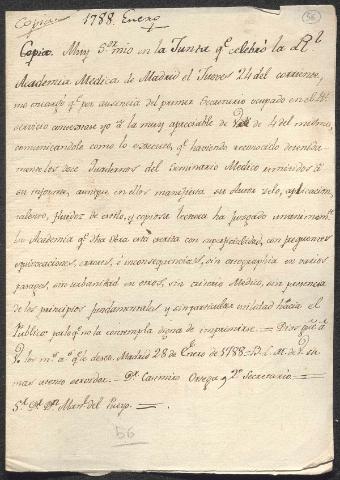 Copia 1788 Enero
56
Copia. Muy Sor mio en la Junta qe celebró la Rl
Academia Medica de Madrid el Jueves 24 del corriente,
me encargó qe por ausencia del primer Secretario ocupado en el Rl
servicio contextase yo á la muy apreciable de Vd de 4 del mismo,
comunicandole como lo executo, qe haviendo reconocido detenida-
mente los doce Quadernos del Seminario Medico remitidos á
su informe, aunque en ellos manifiesta su Autor zelo, aplicacion,
talento, fluidez de estilo, y copiosa lectura ha juzgado unanimemte
la Academia qe dha Obra está escrita con superficialidad, con frequentes
equivocaciones, errores, é inconsequencias, sin ortographia en varios
parages, con urbanidad en otros, sin criterio Medico, sin
de los principios fundamentales y sin particular utilidad hacia el
Publico por lo qe no la contempla digna de imprimirse. = Dios gue á
Vd los ms as qe le deseo. Madrid 28 de Enero de 1788. = B. L. M. de Vd su
mas atento servidor. = Dr Casimiro Ortega, 2o Secretario. =
Sr Dr Dn Manl del Pueyo. =
56